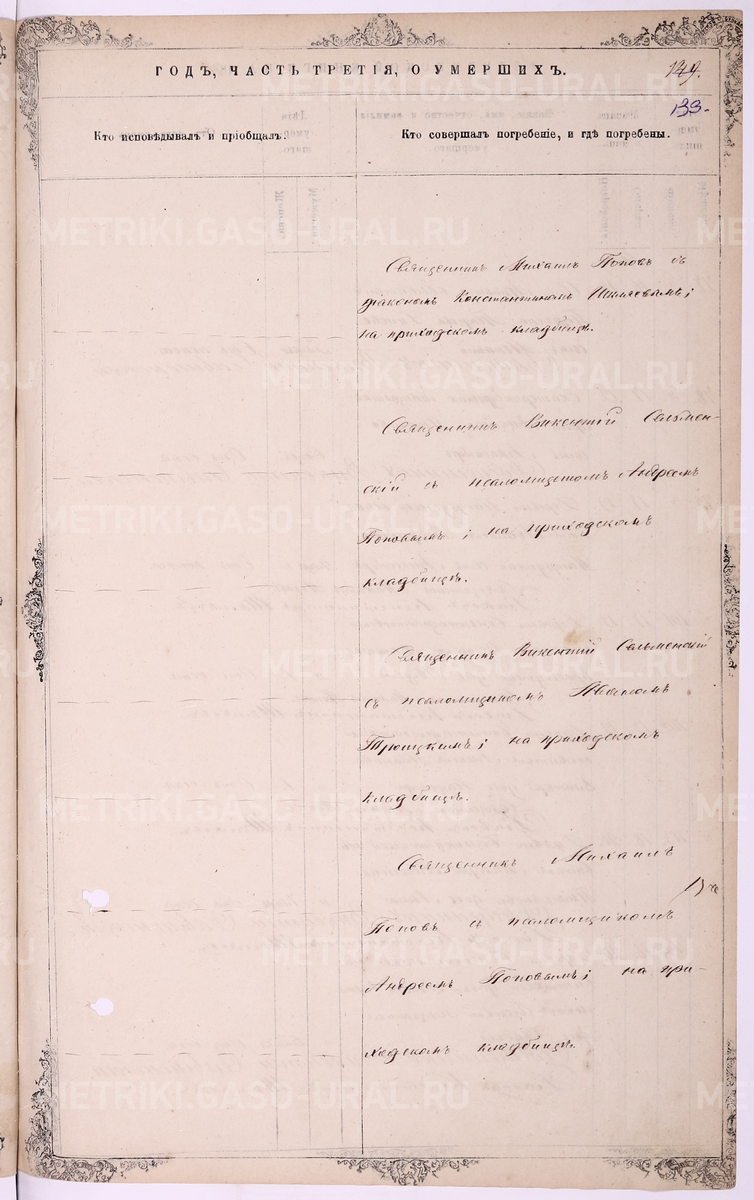 ГОДЪ, ЧАСТЬ ТРЕТІЯ, О УМЕРШИХЪ.
149.
133.
Кто исповѣдывалъ и пріобщалъ.
Кто совершалъ погребеніе, и гдѣ погребены.
Священникъ Михаилъ Поповъ съ
діакономъ Константиномъ
на приходскомъ кладбищѣ.
Священникъ Викентій Сельмен-
скій съ псаломщикомъ Андреемъ
Поповымъ; на приходскомъ
кладбищѣ.
Священникъ Викентій Сельменскій
съ псаломщикомъ Иваномъ
Троицкимъ; на приходскомъ
кладбищѣ.
Священникъ Михаилъ
Поповъ съ псаломщикомъ
Андреемъ Поповымъ; на при-
ходскомъ кладбищѣ.
METRIKI.GASO-URAL.RU